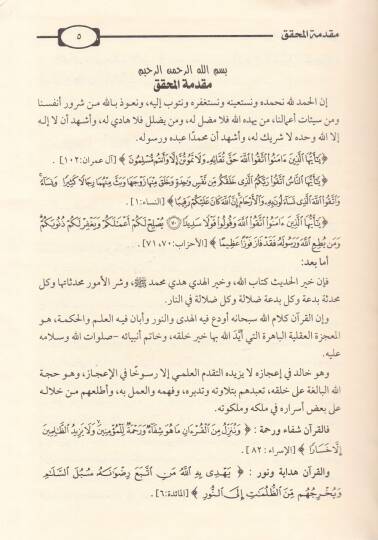 مقدمة المحقق
٥
بسم الله الرحمن الرحيم
مقدمة المحقق
إن الحمد لله نحمده ونستعينه ونستغفره ونتوب إليه، ونعوذ بالله من شرور أنفسنا
ومن سيئات أعمالنا، من يهده الله فلا مضل له، ومن يضلل فلا هادي له، وأشهد أن لا إله
إلا الله وحده لا شريك له، وأشهد أن محمدًا عبده ورسوله.
﴿ يَٰٓأَيُّهَا ٱلَّذِينَ ءَامَنُوا۟ ٱتَّقُوا۟ ٱللَّهَ حَقَّ تُقَاتِهِۦ وَلَا تَمُوتُنَّ إِلَّا وَأَنتُم مُّسْلِمُونَ ﴾ [آل عمران:١٠٢].
﴿ يَٰٓأَيُّهَا ٱلنَّاسُ ٱتَّقُوا۟ رَبَّكُمُ ٱلَّذِى خَلَقَكُم مِّن نَّفْسٍ وَٰحِدَةٍ وَخَلَقَ مِنْهَا زَوْجَهَا وَبَثَّ مِنْهُمَا رِجَالًا كَثِيرًا وَنِسَآءً
وَٱتَّقُوا۟ ٱللَّهَ ٱلَّذِى تَسَآءَلُونَ بِهِۦ وَٱلْأَرْحَامَ إِنَّ ٱللَّهَ كَانَ عَلَيْكُمْ رَقِيبًا ﴾ [النساء:١].
﴿ يَٰٓأَيُّهَا ٱلَّذِينَ ءَامَنُوا۟ ٱتَّقُوا۟ ٱللَّهَ وَقُولُوا۟ قَوْلًا سَدِيدًا ۝٧٠ يُصْلِحْ لَكُمْ أَعْمَٰلَكُمْ وَيَغْفِرْ لَكُمْ ذُنُوبَكُمْ
وَمَن يُطِعِ ٱللَّهَ وَرَسُولَهُۥ فَقَدْ فَازَ فَوْزًا عَظِيمًا ﴾ [الأحزاب:٧١،٧٠].
أما بعد:
فإن خير الحديث كتاب الله، وخير الهدي هدي محمد ﷺ، وشر الأمور محدثاتها وكل
محدثة بدعة وكل بدعة ضلالة وكل ضلالة في النار.
وإن القرآن كلام الله سبحانه أودع فيه الهدى والنور وأبان فيه العلم والحكمة، هو
المعجزة العقلية الباهرة التي أيَّد الله بها خير خلقه، وخاتم أنبيائه -صلوات الله وسلامه
عليه.
وهو خالد في إعجازه لا يزيده التقدم العلمي إلا رسوخًا في الإعجاز، وهو حجة
الله البالغة على خلقه، تعبدهم بتلاوته وتدبره، وفهمه والعمل به، وأطلعهم من خلاله
على بعض أسراره في ملكه وملكوته.
فالقرآن شفاء ورحمة : ﴿ وَنُنَزِّلُ مِنَ ٱلْقُرْءَانِ مَا هُوَ شِفَآءٌ وَرَحْمَةٌ لِّلْمُؤْمِنِينَ وَلَا يَزِيدُ ٱلظَّٰلِمِينَ
إِلَّا خَسَارًا ﴾ [الإسراء: ٨٢].
والقرآن هداية ونور : ﴿ يَهْدِى بِهِ ٱللَّهُ مَنِ ٱتَّبَعَ رِضْوَٰنَهُۥ سُبُلَ ٱلسَّلَٰمِ
وَيُخْرِجُهُم مِّنَ ٱلظُّلُمَٰتِ إِلَى ٱلنُّورِ ﴾ [المائدة:١٦].